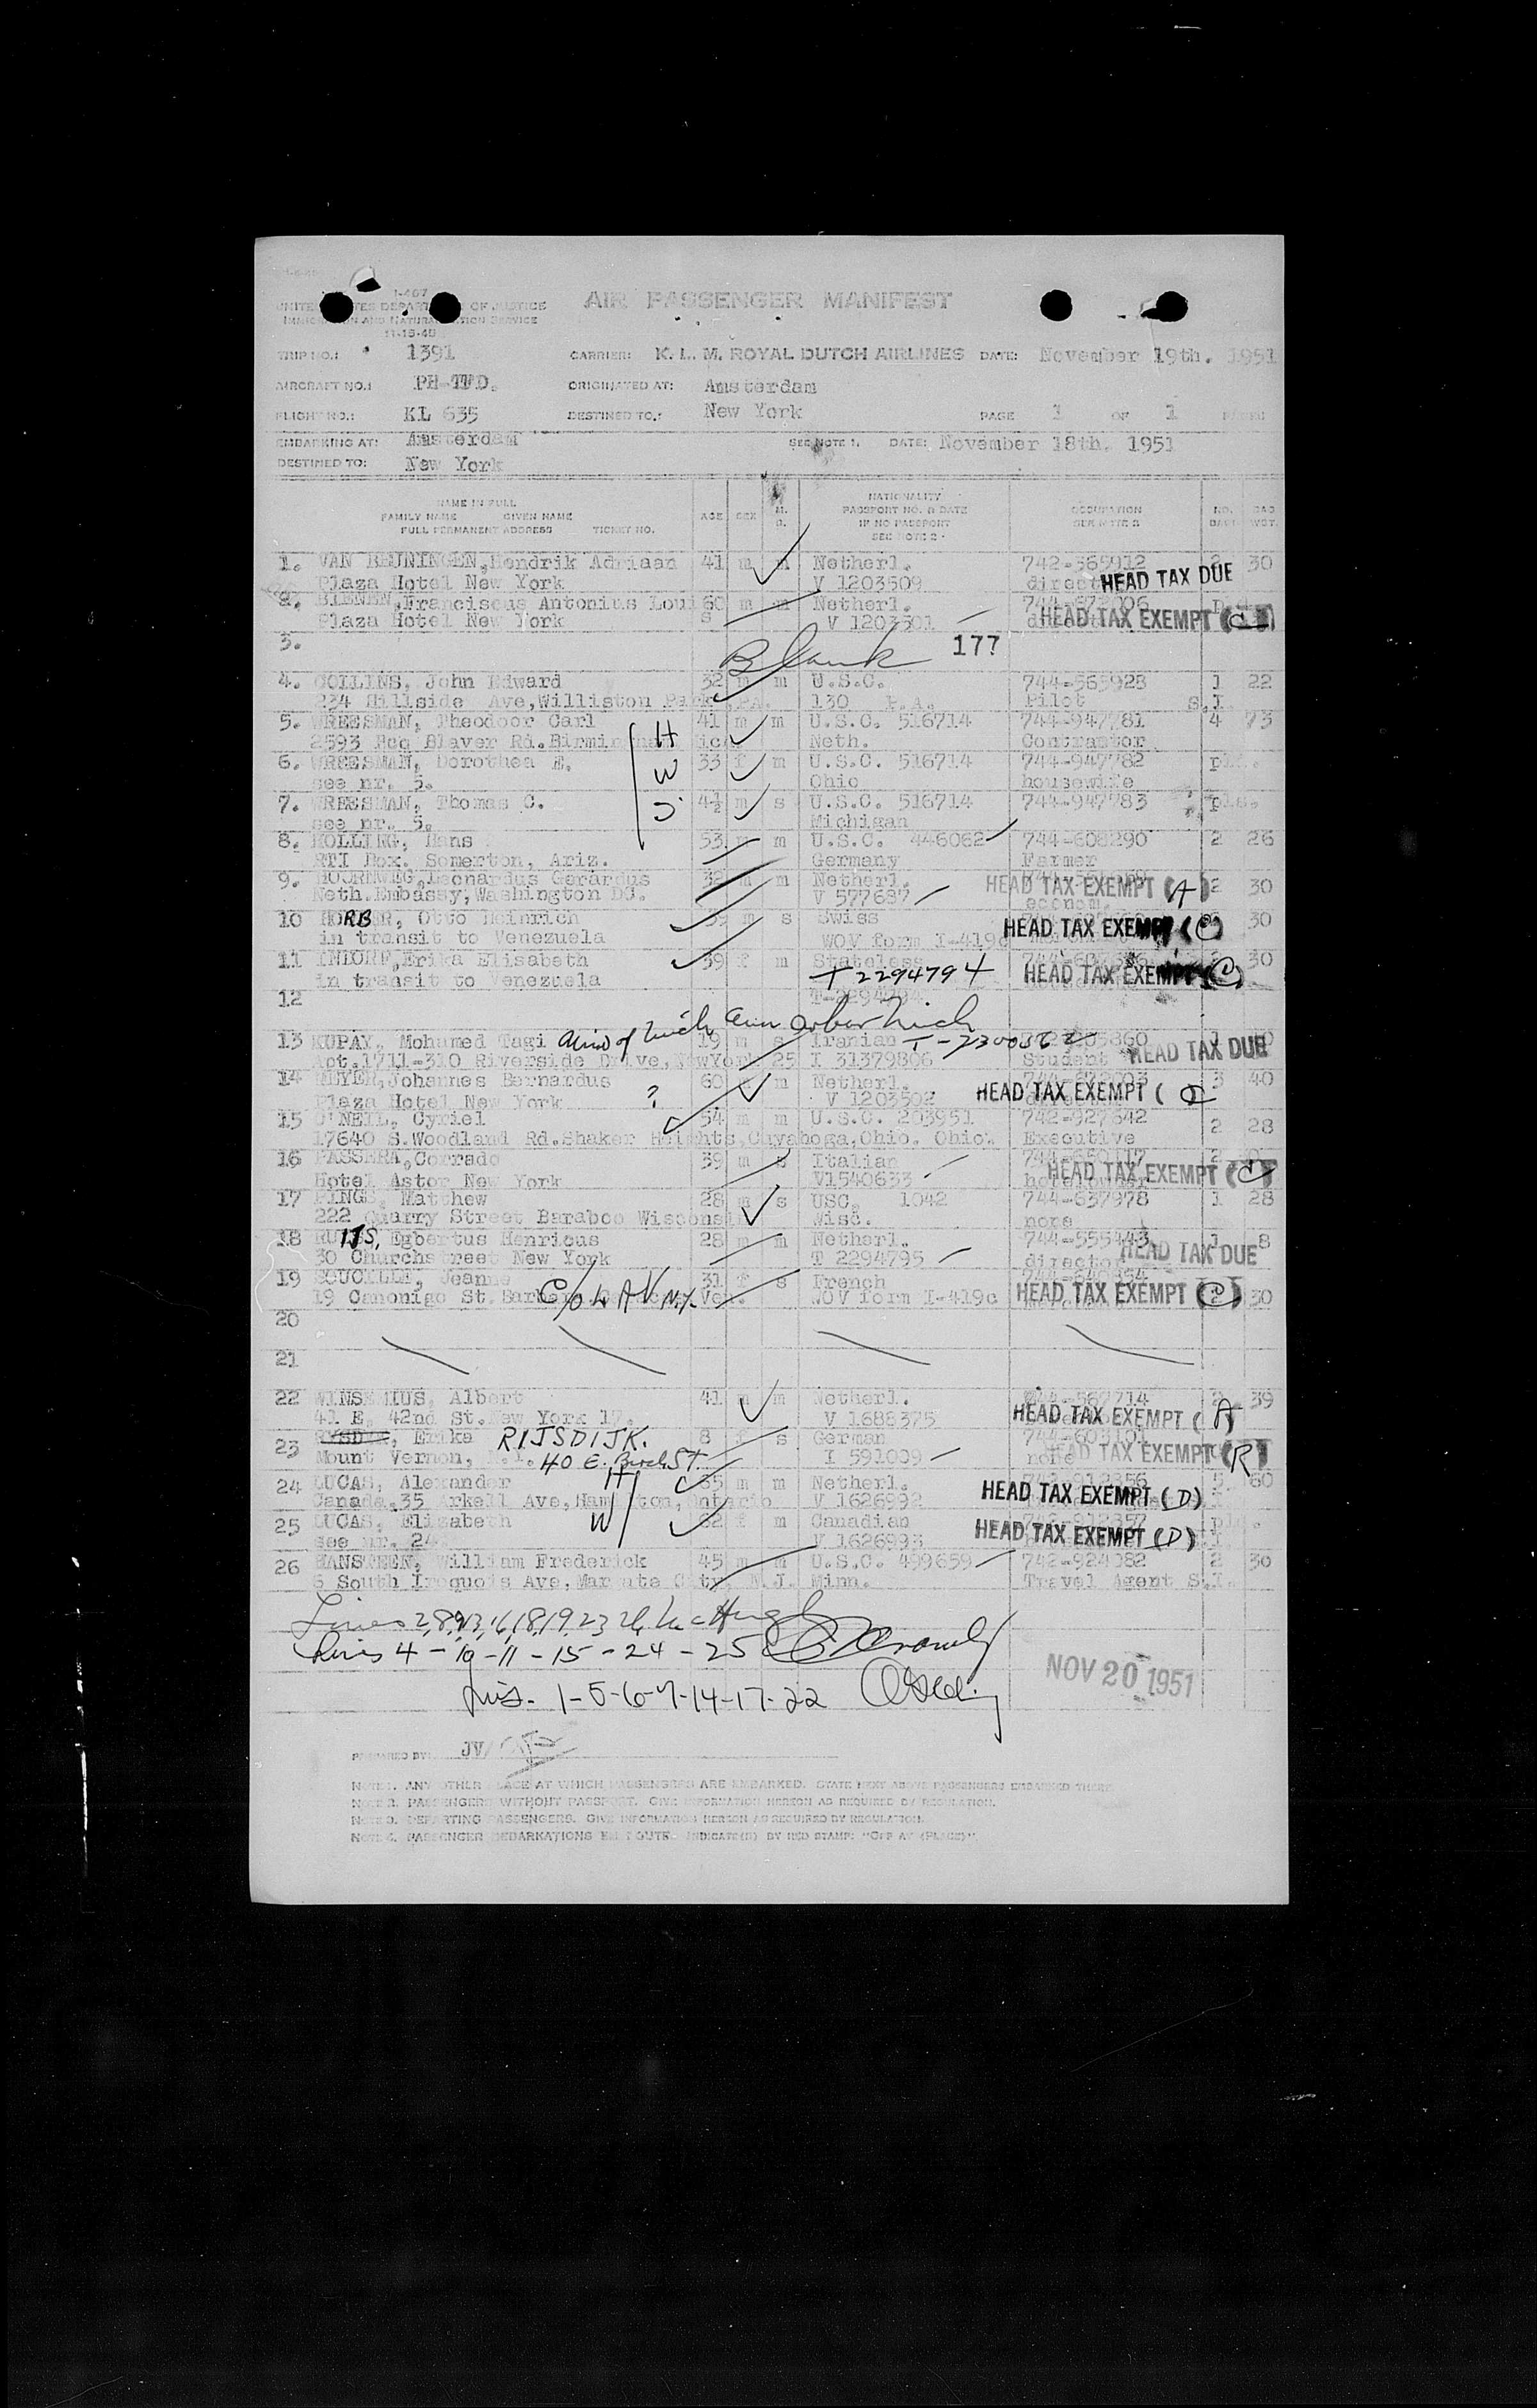 I-467
UNITED STATES DEPARTMENT OF JUSTICE AIR PASSENGER MANIFEST
IMMIGRATION AND NATURALIZATION SERVICE
11-15-48
TRIP NO.: 1391 CARRIER: K. L. M. ROYAL DUTCH AIRLINES DATE: November 19th. 1951
AIRCRAFT NO.: PH-TFD. ORIGINATED AT: Amsterdam
FLIGHT NO.: KL 635 DESTINED TO.: New York PAGE 1 OF 1 PAGES
EMBARKING AT: Amsterdam SEE NOTE 1. DATE: November 18th. 1951
DESTINED TO: New York
NAME IN FULL NATIONALITY
FAMILY NAME GIVEN NAME AGE SEX M. PASSPORT NO. & DATE OCCUPATION NO. BAG
FULL PERMANENT ADDRESS TICKET NO. IF NO PASSPORT SEE NOTE 2 BAGS WGT.
SEE NOTE 2
1. VAN BEUNINGEN, Hendrik Adriaan 41 m m Netherl. 742-565912 2 30
Plaza Hotel New York V 1203509 HEAD TAX DUE
2. BIENEN, Franciscus Antonius Loui 60 m m Netherl.
Plaza Hotel New York s V 1203501 HEAD TAX EXEMPT (C)
3. Blank 177
4. COLLINS, John Edward 32 m m U.S.C. 744-565928 1 22
234 Hillside Ave, Williston Park, PA. 130 P.A. Pilot S.I.
5. WREESMAN, Theodoor Carl H 41 m m U.S.C. 516714 744-947781 4 73
2593 Blaver Rd. Neth. Contractor
6. WREESMAN, Dorothea E. W 33 f m U.S.C. 516714 744-947782
see nr. 5. Ohio housewife
7. WREESMAN, Thomas C. S 4½ m s U.S.C. 516714 744-947783
see nr. 5. Michigan
8. HOLLING, Hans 53 m m U.S.C. 446062 744-608290 2 26
RTI Box. Somerton, Ariz. Germany Farmer
9. Leonardus Gerardus 32 m m Netherl.
Neth. Embassy, Washington DC. V 577687 econom. HEAD TAX EXEMPT (A) 2 30
10 RB Otto Heinrich 39 m s Swiss 30
in transit to Venezuela WOV form I-419c HEAD TAX EXEMPT (C)
11 INDORF, Erika Elisabeth 39 f m Stateless 30
in transit to Venezuela T 2294794 HEAD TAX EXEMPT (C)
12 T-2294794
Univ of Mich Ann Arbor Mich
13 KUPAY, Mohamed Tagi 19 m s Iranian 1
Apt. 1711-310 Riverside Drive, New York 25 I 31379806 Student HEAD TAX DUE
14 MEYER, Johannes Bernardus 60 m Netherl. 3 40
Plaza Hotel New York ? V 1203502 HEAD TAX EXEMPT (
15 O'NEIL, Cyriel 54 m m U.S.C. 203951 742-927642
17640 S. Woodland Rd. Shaker Heights, Cuyahoga, Ohio. Ohio. Executive 2 28
16 PASSERA, Corrado 39 m s Italian
Hotel Astor New York V1540633 HEAD TAX EXEMPT (C)
17 PINGS, Matthew 28 m s USC. 1042 744-637978 1 28
222 Quarry Street Baraboo Wisconsin Wisc. none
18 IJS, Egbertus Henricus 28 m m Netherl. 744-555443 8
30 Churchstreet New York T 2294795 director HEAD TAX DUE
19 Jeanne 31 f s French
19 Canonigo St. C/O LAV N.Y. Ven. WOV form I-419c HEAD TAX EXEMPT (C) 30
20
21
22 WINSEMIUS, Albert 41 m m Netherl. 2 39
41 E. 42nd St. New York 17. V 1688375 HEAD TAX EXEMPT (A)
23 Erika RIJSDIJK. 8 f s German 744-603101
Mount Vernon, 40 E. Birch St I 591009 none HEAD TAX EXEMPT (R)
24 LUCAS, Alexander H 65 m m Netherl. 5 60
Canada, 35 Arkell Ave, Hamilton, Ontario V 1626992 HEAD TAX EXEMPT (D)
25 LUCAS, Elizabeth W 62 f m Canadian
see nr. 24 V 1626993 HEAD TAX EXEMPT (D)
26 HANSTEEN, William Frederick 45 m m U.S.C. 499659 742-924082 2 30
6 South Iroquois Ave, Margate City, N.J. Minn. Travel Agent S.I.
Lines 2,8,9,13,16,18,19,23,26
Lines 4 - 10 - 11 - 15 - 24 - 25
1-5-6-7-14-17-22
NOV 20 1951
PREPARED BY: JV/
NOTE 1. ANY OTHER PLACE AT WHICH PASSENGERS ARE EMBARKED. STATE NEXT ABOVE PASSENGERS EMBARKED THERE.
NOTE 2. PASSENGERS WITHOUT PASSPORT. GIVE INFORMATION HEREON AS REQUIRED BY REGULATION.
NOTE 3. DEPARTING PASSENGERS. GIVE INFORMATION HEREON AS REQUIRED BY REGULATION.
NOTE 4. PASSENGER DEBARKATIONS EN ROUTE. INDICATE(D) BY RED STAMP: "OFF AT (PLACE)".